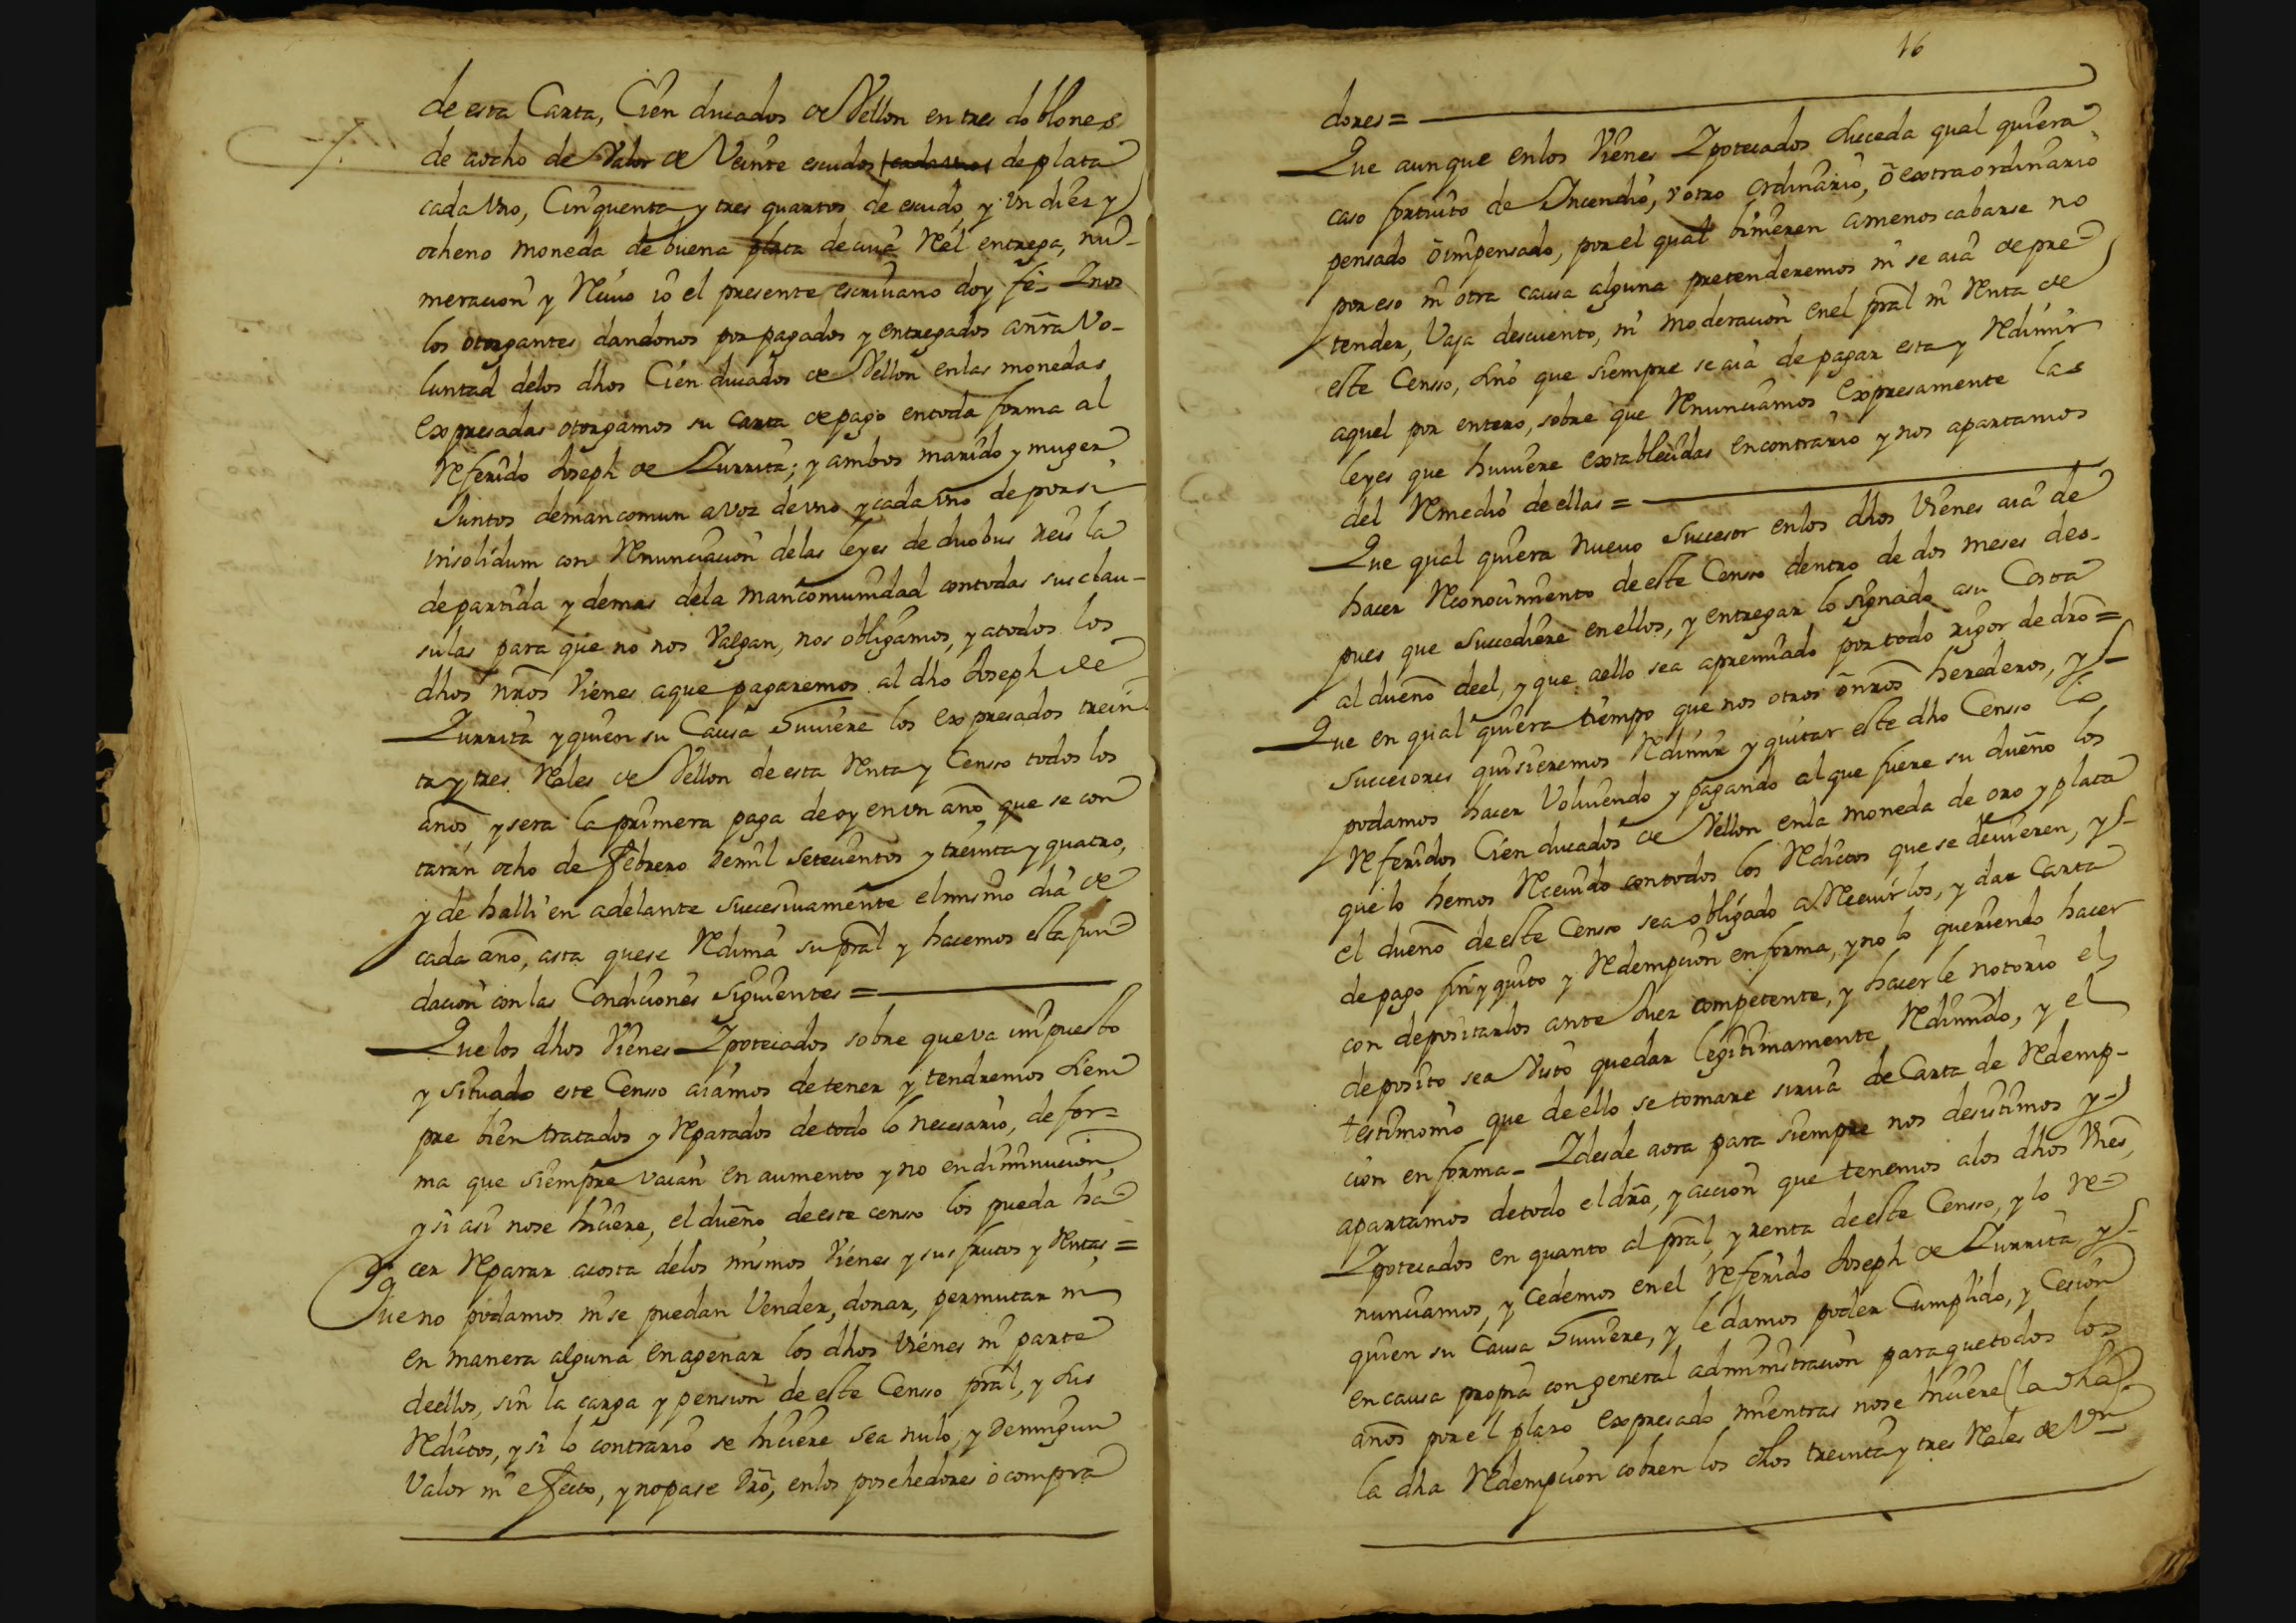 de esta Carta, Cien ducados de Vellon en tres doblones
de aocho de Valor de Veinte escudos de plata
cada Vno, Cinquenta y tres quartos de escudo, y Vn diez y
ocheno moneda de buena plata de cuia Rl entrega, nu-
meracion y Reciuo io el presente escriuano doy fe- Y nos
los otorgantes dandonos por pagados y entregados a nr̃a Vo-
luntad delos dhos Cien ducados de Vellon enlas monedas
Expresadas otorgamos su carta de pago en toda forma al
Referido Joseph de Zurrita; y ambos marido y muger
Juntos demancomun avoz de vno y cada vno de por si
insolidum con Renunciacion delas leyes de duobus reis la
de partida y demas dela mancomunidad contodas sus clau-
sulas para que no nos Valgan, nos obligamos, y atodos los
dhos nr̃os Vienes aque pagaremos al dho Joseph de
Zurrita y quien su Causa huuiere los expresados trein-
ta y tres Reales de Vellon de esta Renta y Censso todos los
años y sera la primera paga de oy en vn año que se con
taràn ocho de Febrero demil setecientos y treinta y quatro,
y de halli en adelante succesiuamente el mismo dia de
cada año, asta quese Redima su pral y hacemos esta fun
dacion con las Condiciones Siguientes =
Que los dhos Vienes Ypotecados sobre que va impuesto
y situado este Censso aiamos de tener y tendremos siem
pre bien tratados y Reparados de todo lo necesario, de for=
ma que siempre vaian en aumento y no en diminucion,
y si asi nose hiciere, el dueño de este censso los pueda ha
cer Reparar acosta delos mismos Vienes y sus frutos y Rentas =
Que no podamos ni se puedan Vender, donar, permutar ni
en manera alguna enagenar los dhos Vienes ni parte
deellos, sin la carga y pension de este Censso pral, y sus
Reditos, y si lo contrario se hiciere sea nulo, y de ningun
Valor ni efecto, y no pase dr̃o, enlos posehedores o compra
16
dores =
Que aunque enlos Vienes Ypotecados suceda qual quiera
caso fortuito de Yncendio, v otro ordinario, ò extraordinario
pensado ò impensado, por el qual binieren a menoscabarse no
por eso ni otra causa alguna pretenderemos ni se aia de pre
tender, Vaja descuento, ni moderacion en el pral ni Renta de
este Censso, sino que siempre se aia de pagar esta y Redimir
aquel por entero, sobre que Renunciamos Expresamente las
leyes que huuiere extablecidas encontrario y nos apartamos
del Remedio de ellas =
Que qual quiera nueuo Succesor enlos dhos Vienes aia de
hacer Reconocimiento de este Censso dentro de dos meses des-
pues que Succediere en ellos, y entregar lo signado asu Costa
al dueño deel, y que aello sea apremiado por todo rigor de dr̃o =
Que en qual quiera tiempo que nos otros o nr̃os herederos, y
Succesores quisieremos Redimir y quitar este dho Censso lo
podamos hacer Voluiendo y pagando al que fuere su dueño los
Referidos Cien ducados de Vellon enla moneda de oro y plata
que lo hemos Reciuido con todos los Reditos que se deuieren, y
el dueño de este Censso sea obligado a Reciuirlos, y dar Carta
de pago finyquito y Redempcion en forma, y no lo queriendo hacer
con depositarlos ante Juez competente, y hacerle notorio el
deposito sea Visto quedar legitimamente Redimido, y el
testimonio que de ello se tomare sirua de Carta de Redemp-
cion en forma - Y desde aora para siempre nos desistimos y
apartamos de todo el dr̃o, y accion que tenemos alos dhos Vienes,
Ypotecados en quanto al pral, y renta de este Censso, y lo Re
nunciamos, y Cedemos en el Referido Joseph de Zurrita, y
quien su Causa huuiere, y le damos poder Cumplido, y Cesion
en causa propia con general administracion para que todos los
años por el plazo expresado mientras nose hiciere (la dha)
la dha Redempcion cobren los dhos treinta y tres Reales de Vn